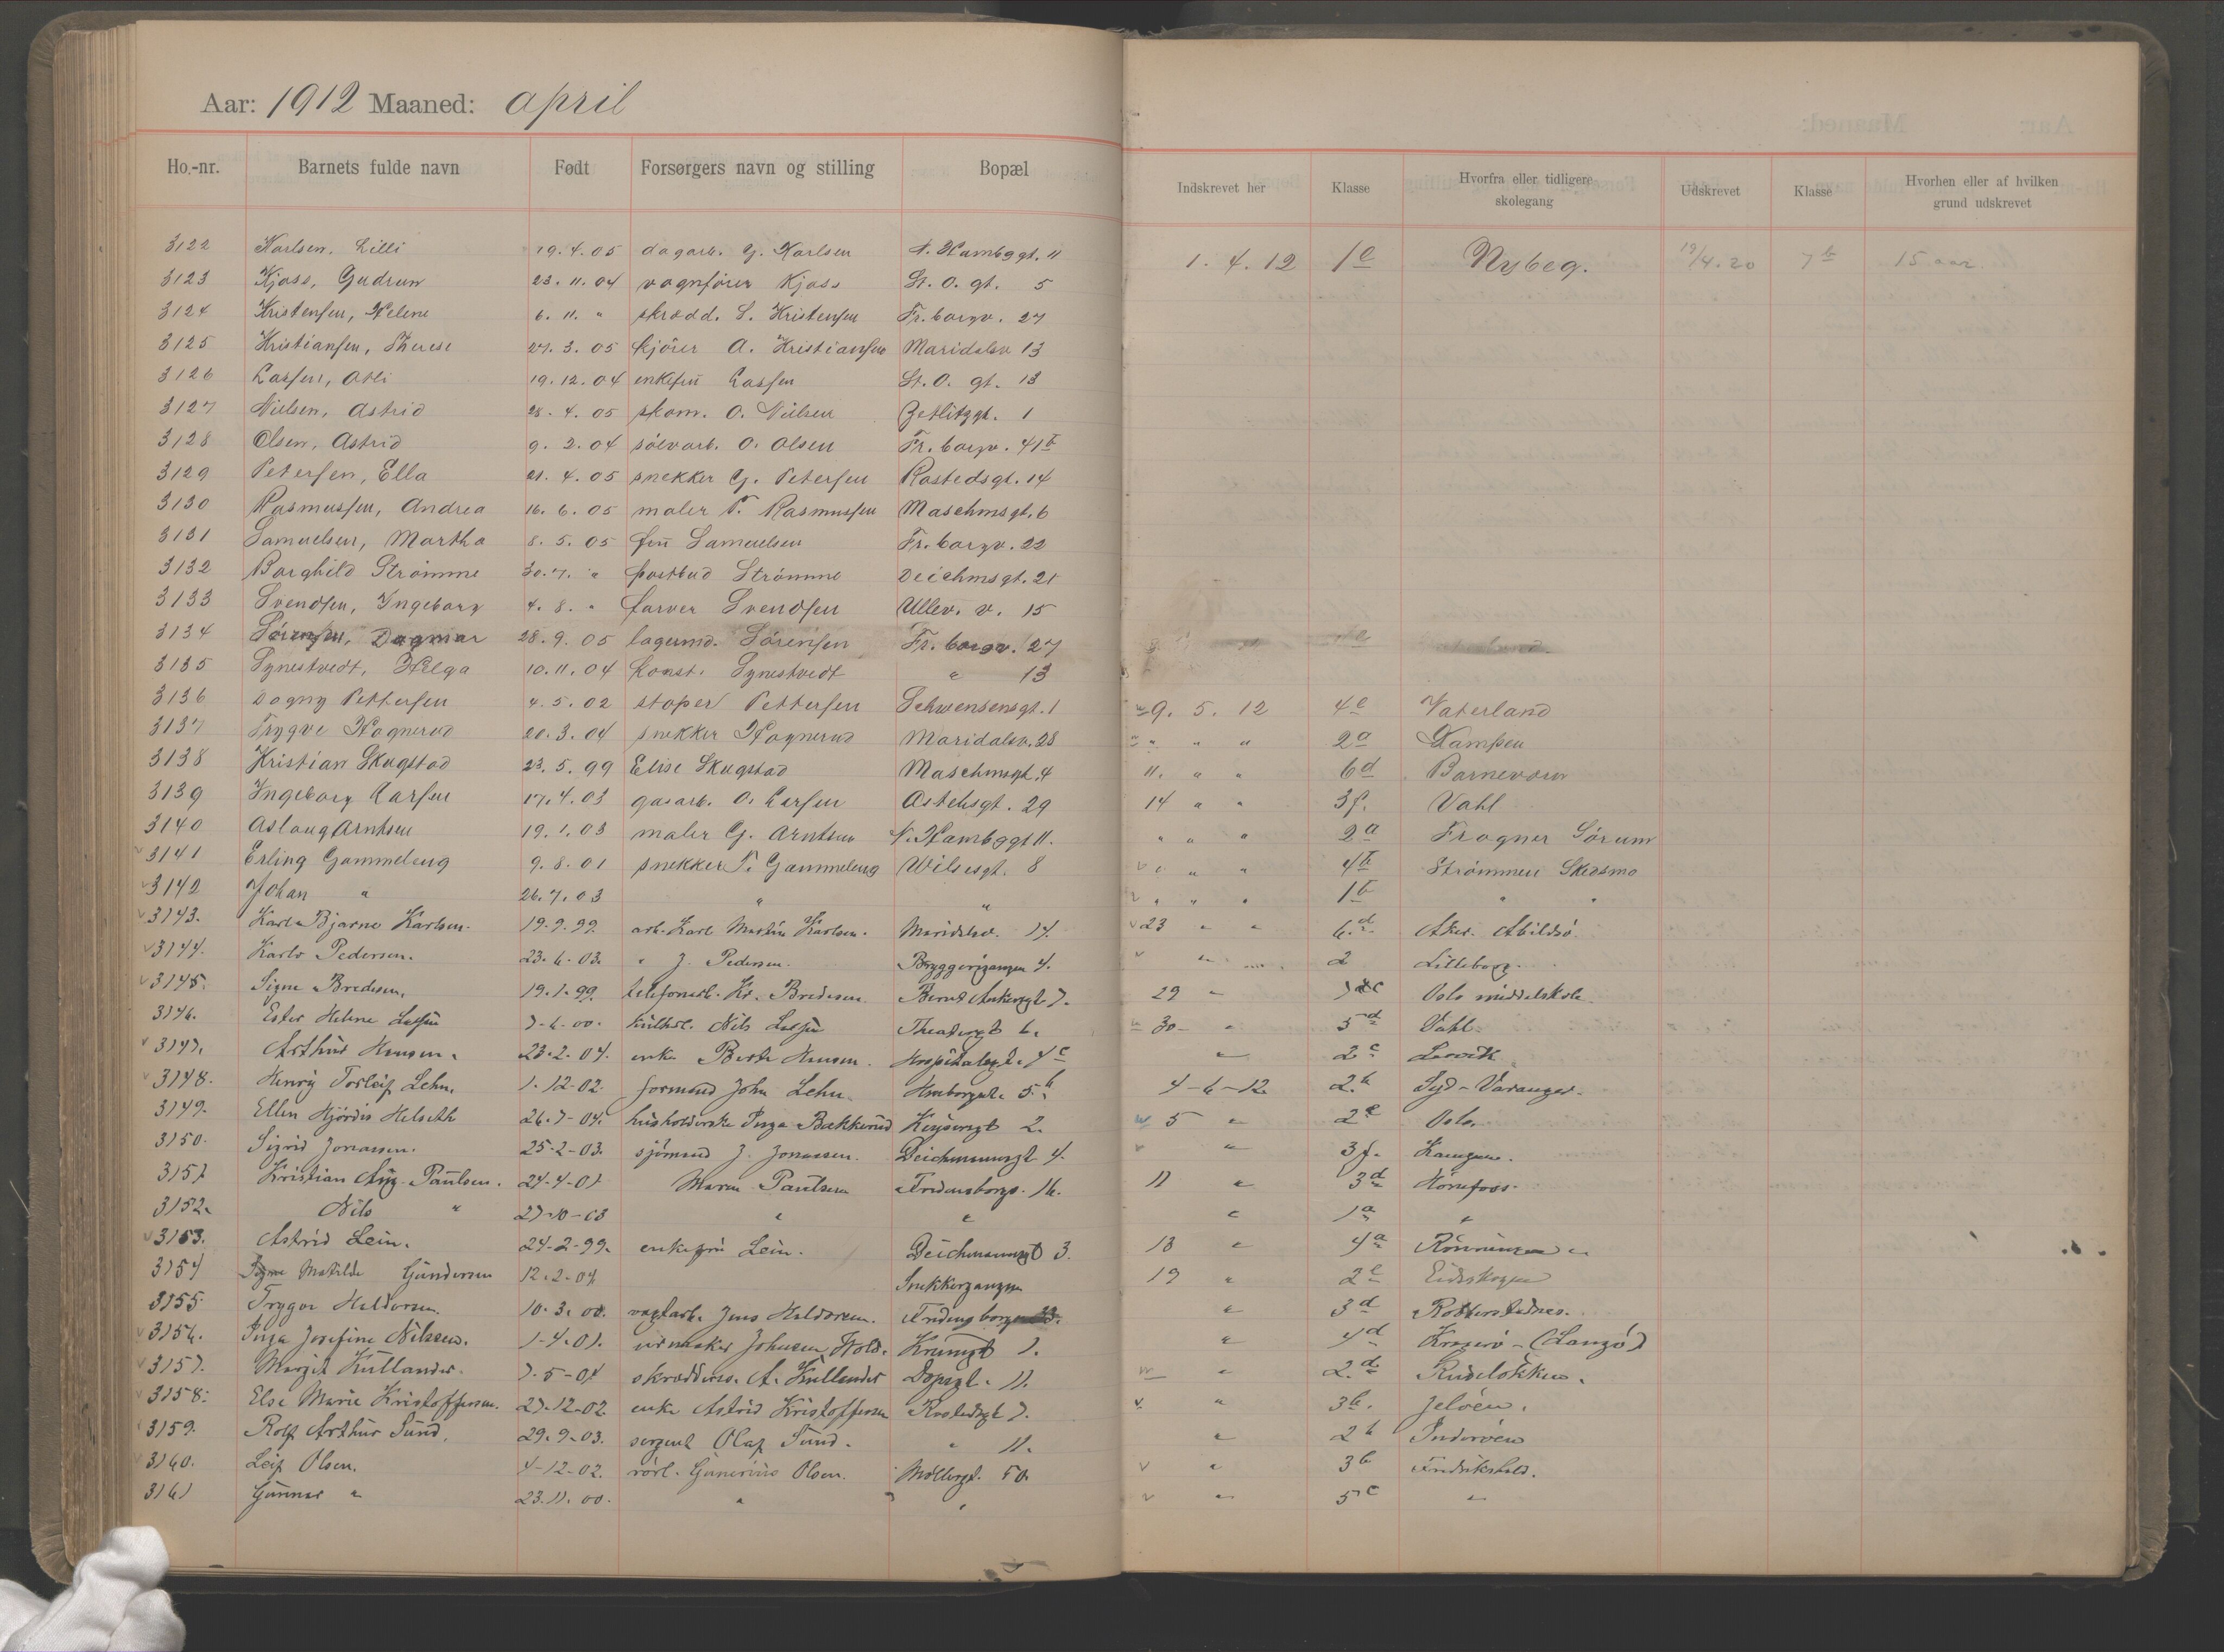 Aar: 1912 Maaned: april
Ho.-nr. Barnets fulde navn Født Forsørgers navn og stilling Bopæl Indskrevet her Klasse Hvorfra eller tidligere skolegang Udskrevet Klasse Hvorhen eller af hvilken grund udskrevet
3122 Karlsen, Lilli 19.4.05 dagarb. G. Karlsen N. Hambggt. 11 1.4.12 1e Nybeg. 19/4.20 7b 15 aar.
3123 Kjøss, Gudrun 23.11.04 vognfører Kjøss St. O. gt. 5
3124 Kristensen, Helene 6.11. " skrædd. S. Kristensen Fr.borgv. 27
3125 Kristiansen, Therese 27.3.05 kjører A. Kristiansen Maridalsv 13
3126 Larsen, Atli 19.12.04 enkefru Larsen St. O. gt. 13
3127 Nielsen, Astrid 28.4.05 skom. O. Nielsen Zetlitzgt. 1
3128 Olsen, Astrid 9.2.04 sølvarb. O. Olsen Fr.borgv. 41b
3129 Petersen, Ella 21.4.05 snekker G. Petersen Rostedsgt. 14
3130 Rasmussen, Andrea 16.6.05 maler T. Rasmussen Maschmsgt. 6
3131 Samuelsen, Martha 8.5.05 fru Samuelsen Fr.borgv. 22
3132 Borghild Strømme 30.7. " postbud Strømme Deichmsgt. 21
3133 Svendsen, Ingeborg 4.8. " farver Svendsen Ullev. v. 15
3134 Sørensen, Dagmar 28.9.05 lagermd. Sørensen Fr.borgv. 27
3135 Synestvedt, Helga 10.11.04 konst. Synestvedt " 13
3136 Dagny Pettersen 4.5.02 støper Pettersen Schwensensgt. 1 9.5.12 4e Vaterland
3137 Trygve Hagnerud 20.3.04 snekker Hagnerud Maridalsv. 28 " " " 2a Kampen
3138 Kristian Skugstad 23.5.99 Elise Skugstad Maschmsgt. 4 11. " " 6d Barnevern
3139 Ingeborg Larsen 17.4.03 gasarb. O. Larsen Astehsgt. 29 14 " " 3f. Vahl
3140 Aslaug Arntsen 19.1.03 maler G. Arntsen N. Hambggt 11. " " " 2a Frogner Sørum
3141 Erling Gammeleng 9.8.01 snekker T. Gammeleng Wilsesgt. 8 " " " 4b Strømmen Skedsmo
3142 Johan " 26.7.03 " " " " " 1b " "
3143. Karl Bjarne Karlsen. 19.9.99 arb. Karl Martin Karlsen. Maridalsv. 14. 23 " " 6d. Aker. Abildsø.
3144. Karlo Pedersen. 23.6-03. " J. Pedersen. Bryggerigangen 4. " 2 Lilleborg.
3145. Signe Bredesen. 19.1.99. telefonarb. Kr. Bredesen Bernt Ankersgt. 7. 29 " Oslo middelskole
3146. Ester Helene Larsen 7-6-00. Nils Larsen Theatergt 6. 30- " 5d Vahl.
3147. Arthur Hansen. 23.2-04. enke Berta Hansen. Hospitalsgt. 4c " 2c Larvik
3148. Henry Torleif Lehn. 1-12-02. formand John Lehn. 4-6-12. 2b Syd-Varanger.
3149. Ellen Hjørdis Helseth 26.7-04. husholderske Inga Bakkerud Keysersgt 2. 5 " 2e Oslo.
3150. Sigrid Jonassen. 25-2-03. sjømand J. Jonassen. Deichmannsgt 4. " 3f. Kampen.
3151 Kristian Aug. Paulsen. 24-4-01 Maren Paulsen Fredensborgv. 16. 11 " 3d Hønefoss.
3152. Nils " 27-10-03 " " " 1a "
3153. Astrid Lein. 24-2-99. enkefru Lein. Deichmannsgt 3. 13 " 4a
3154 Matilde Gundersen 12.2-04 Snekkergangen 19 " 2e Eidskogen
3155 Trygve Haldorsen. 10.3.00. Jens Haldorsen. Fredensborgv. " 3d
3156. Inga Josefine Nilssen. 1-4.01. urmaker Johnsen Hold. Krumgt 7. " 4d Kragerø - (Langø)
3157. Margit Kullander. 7.5-04 skræddersv. A. Kullander Dopsgt. 11. " 2d Ruseløkken.
3158. Else Marie Kristoffersen. 27-12-02. enke Astrid Kristoffersen Rostedsgt 7. " 3b. Jeløen.
3159. Rolf Arthur Sund. 29.9-03. sergent Olaf Sund. " 11. " 2b Inderøen
3160. Leif Olsen. 4-12-02. rørl. Gunerius Olsen. Møllergt. 50. " 3b Fredrikshald.
3161 Gunnar " 23.11.00. " " " 5c "